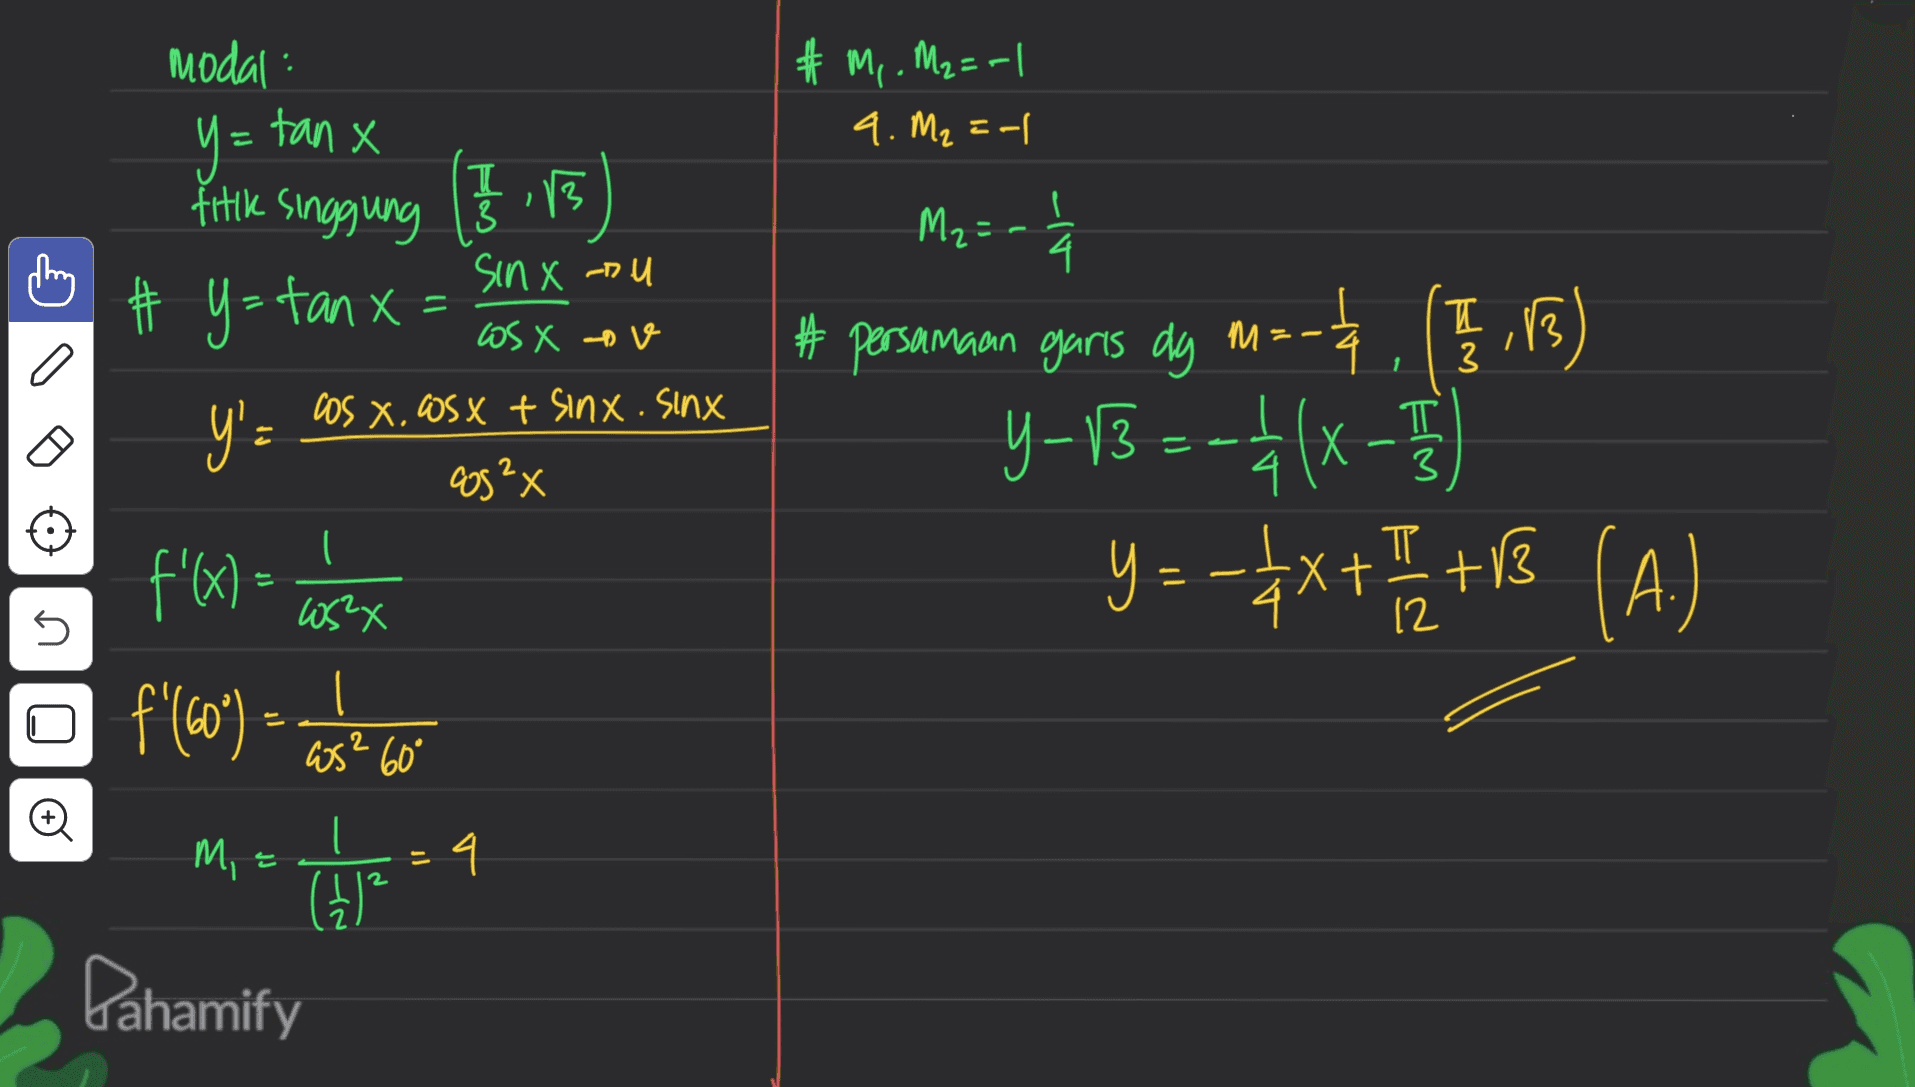 modal :
y = tan x
titik singgung (π/3 , √3)
# y = tan x = sin x / cos x → u → v
y' = cos x . cos x + sin x . sin x / cos²x
f'(x) = 1 / cos²x
f'(60°) = 1 / cos² 60°
m₁ = 1 / (1/2)² = 4
# m₁ . m₂ = -1
4 . m₂ = -1
m₂ = - 1/4
# persamaan garis dg m = - 1/4 , (π/3 , √3)
y - √3 = - 1/4 (x - π/3)
y = - 1/4 x + π/12 + √3 (A.)
Pahamify